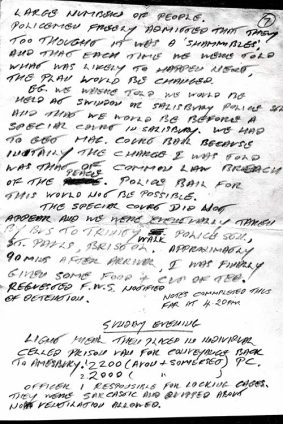 7
LARGE NUMBERS OF PEOPLE.
POLICEMEN FREELY ADMITTED THAT THEY
TOO THOUGHT IT WAS A 'SHAMBLES',
AND THAT EACH TIME WE WERE TOLD
WHAT WAS LIKELY TO HAPPEN NEXT
THE PLAN WOULD BE CHANGED.
EG. WE WERE TOLD WE WOULD BE
HELD AT SWINDON OR SALISBURY POLICE STN
AND THAT WE WOULD BE BEFORE A
SPECIAL COURT IN SALISBURY. WE HAD
TO GET MAG. COURT BAIL BECAUSE
INITIALLY THE CHARGE I WAS TOLD
WAS THAT OF COMMON LAW BREACH
OF THE PEACE. POLICE BAIL FOR
THIS WOULD NOT BE POSSIBLE.
THE SPECIAL COURT DID NOT
APPEAR AND WE WERE EVENTUALLY TAKEN
BY BUS TO TRINITY WALK POLICE STN,
ST. PAULS, BRISTOL. APPROXIMATELY
90 MINS AFTER ARRIVAL, I WAS FINALLY
GIVEN SOME FOOD + CUP OF TEA.
REQUESTED F.W.S. NOTIFIED
OF DETENTION.
NOTES COMPLETED THUS
FAR AT 4-20AM.
SUNDAY EVENING
LIGHT MEAL THEN PLACED IN INDIVIDUAL
CELLED PRISON VAN FOR CONVEYANCE BACK
TO AMESBURY. 2200 (AVON + SOMERSET) P.C.
2000 ( " )
OFFICER 1 RESPONSIBLE FOR LOCKING CAGES.
THEY WERE SARCASTIC AND QUIPPED ABOUT
NO VENTILATION ALLOWED.